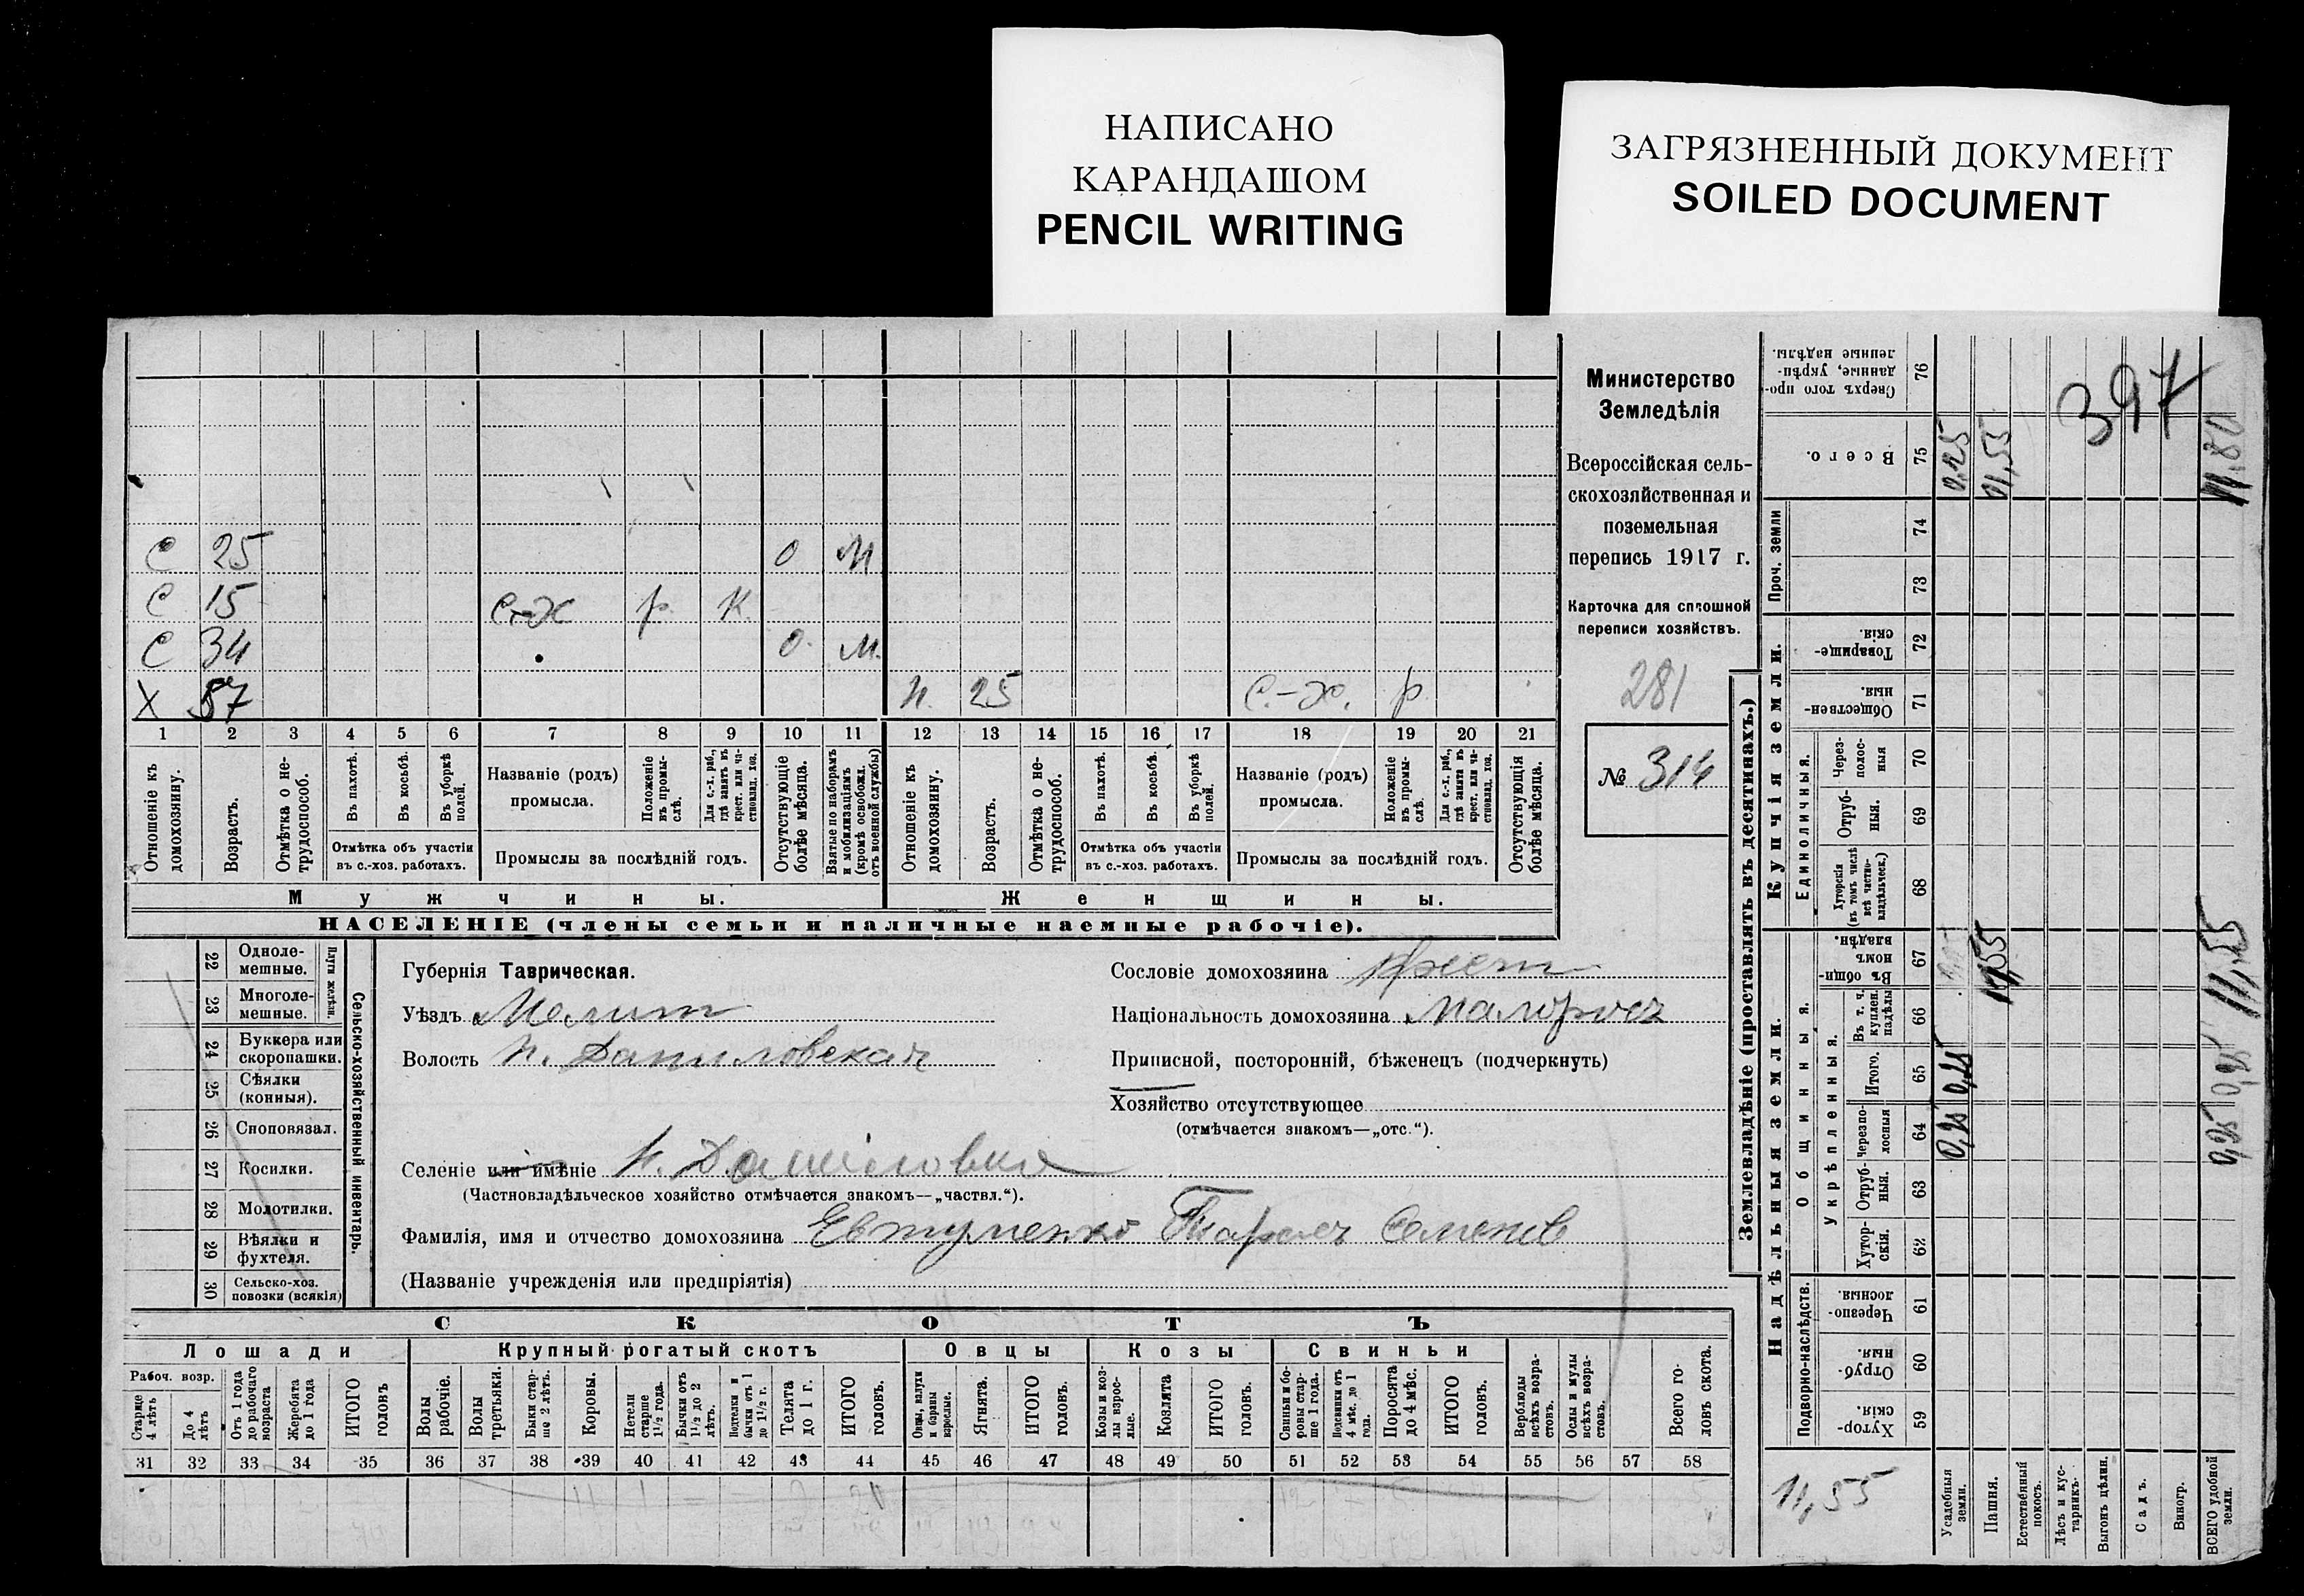 НАПИСАНО
КАРАНДАШОМ
PENCIL WRITING
ЗАГРЯЗНЕННЫЙ ДОКУМЕНТ
SOILED DOCUMENT
С 25 О М
С 15 С-Х р. К.
С 34 О. М.
Х 57 Н. 25 С.-х. р.
1 2 3 4 5 6 7 8 9 10 11 12 13 14 15 16 17 18 19 20 21
Отношеніе къ домохозяину.
Возрастъ.
Отмѣтка о нетрудоспособ.
Въ пахотѣ.
Въ косьбѣ.
Въ уборкѣ полей.
Отмѣтка объ участіи
въ с.-хоз. работахъ.
Названіе (родъ)
промысла.
Положеніе въ промыслѣ.
Для с.-х. раб., гдѣ занятъ въ крест. или частновлад. хоз.
Промыслы за послѣдній годъ.
Отсутствующіе болѣе мѣсяца.
Взятые по наборамъ и мобилизаціямъ (кромѣ освобожд. отъ военной службы)
Отношеніе къ домохозяину.
Возрастъ.
Отмѣтка о нетрудоспособ.
Въ пахотѣ.
Въ косьбѣ.
Въ уборкѣ полей.
Отмѣтка объ участіи
въ с.-хоз. работахъ.
Названіе (родъ)
промысла.
Положеніе въ промыслѣ.
Для с.-х. раб., гдѣ занята въ крест. или частновлад. хоз.
Промыслы за послѣдній годъ.
Отсутствующія болѣе мѣсяца.
Мужчины.
Женщины.
НАСЕЛЕНІЕ (члены семьи и наличные наемные рабочіе).
Министерство
Земледѣлія
Всероссійская сель-
скохозяйственная и
поземельная
перепись 1917 г.
Карточка для сплошной
переписи хозяйствъ.
281
№ 314
22 Одноле-
мешные.
23 Многоле-
мешные.
Плуги желѣзн.
24 Буккера или
скоропашки.
25 Сѣялки
(конныя).
26 Сноповязал.
27 Косилки.
28 Молотилки.
29 Вѣялки и
фухтеля.
30 Сельско-хоз.
повозки (всякія)
Сельско-хозяйственный инвентарь.
Губернія Таврическая.
Уѣздъ Мелит
Волость Н. Даниловская
Сословіе домохозяина Крест
Національность домохозяина малоросъ
Приписной, посторонній, бѣженецъ (подчеркнуть)
Хозяйство отсутствующее
(отмѣчается знакомъ—„отс.“).
Селеніе или имѣніе Н. Даниловка
(Частновладѣльческое хозяйство отмѣчается знакомъ—„частвл.“).
Фамилія, имя и отчество домохозяина Евтушенко Тарасъ Семенов
(Названіе учрежденія или предпріятія)
СКОТЪ
Лошади
Крупный рогатый скотъ
Овцы
Козы
Свиньи
Рабоч. возр.
Старше 4 лѣтъ
До 4 лѣтъ
Отъ 1 года до рабочаго возраста
Жеребята до 1 года
ИТОГО головъ
Волы рабочіе.
Волы третьяки.
Быки старше 2 лѣтъ.
Коровы.
Нетели старше 1 1/2 года.
Бычки отъ 1 1/2 до 2 лѣтъ.
Подтелки и бычки отъ 1 до 1 1/2 г.
Телята до 1 г.
ИТОГО головъ.
Овцы, валухи и бараны взрослые.
Ягнята.
ИТОГО головъ.
Козы и козлы взрослые.
Козлята
ИТОГО головъ.
Свиньи и боровы старше 1 года.
Подсвинки отъ 4 мѣс. до 1 года.
Поросята до 4 мѣс.
ИТОГО головъ.
Верблюды всѣхъ возрастовъ.
Ослы и мулы всѣхъ возрастовъ.
Всего головъ скота.
31 32 33 34 35 36 37 38 39 40 41 42 43 44 45 46 47 48 49 50 51 52 53 54 55 56 57 58
Землевладѣніе (проставлять въ десятинахъ.)
Сверхъ того проданные, укрѣпленные надѣлы. 76
Всего. 75 0,25 11,55 11,80
397
Проч. земли
74
73
Купчія земли.
Товарищескія. 72
Общественныя. 71
Единоличныя.
Черезполосныя 70
Отрубныя. 69
Хуторскія (въ томъ числѣ всѣ частновладѣльческ.) 68
Надѣльныя земли.
Общинныя.
Въ общинномъ владѣн. 67 11,55 11,55
Укрѣпленныя.
Въ т. ч. куплен. надѣлы 66
Итого. 65 0,25 0,25
Черезполосныя 64 0,25 0,25
Отрубныя. 63
Хуторскія. 62
Подворно-наслѣдств.
Черезполосныя 61
Отрубныя. 60
Хуторскія. 59
11,55
Усадебныя земли.
Пашня.
Естественный покосъ.
Лѣсъ и кустарникъ.
Выгонъ цѣлин.
Садъ.
Виногр.
ВСЕГО удобной земли.